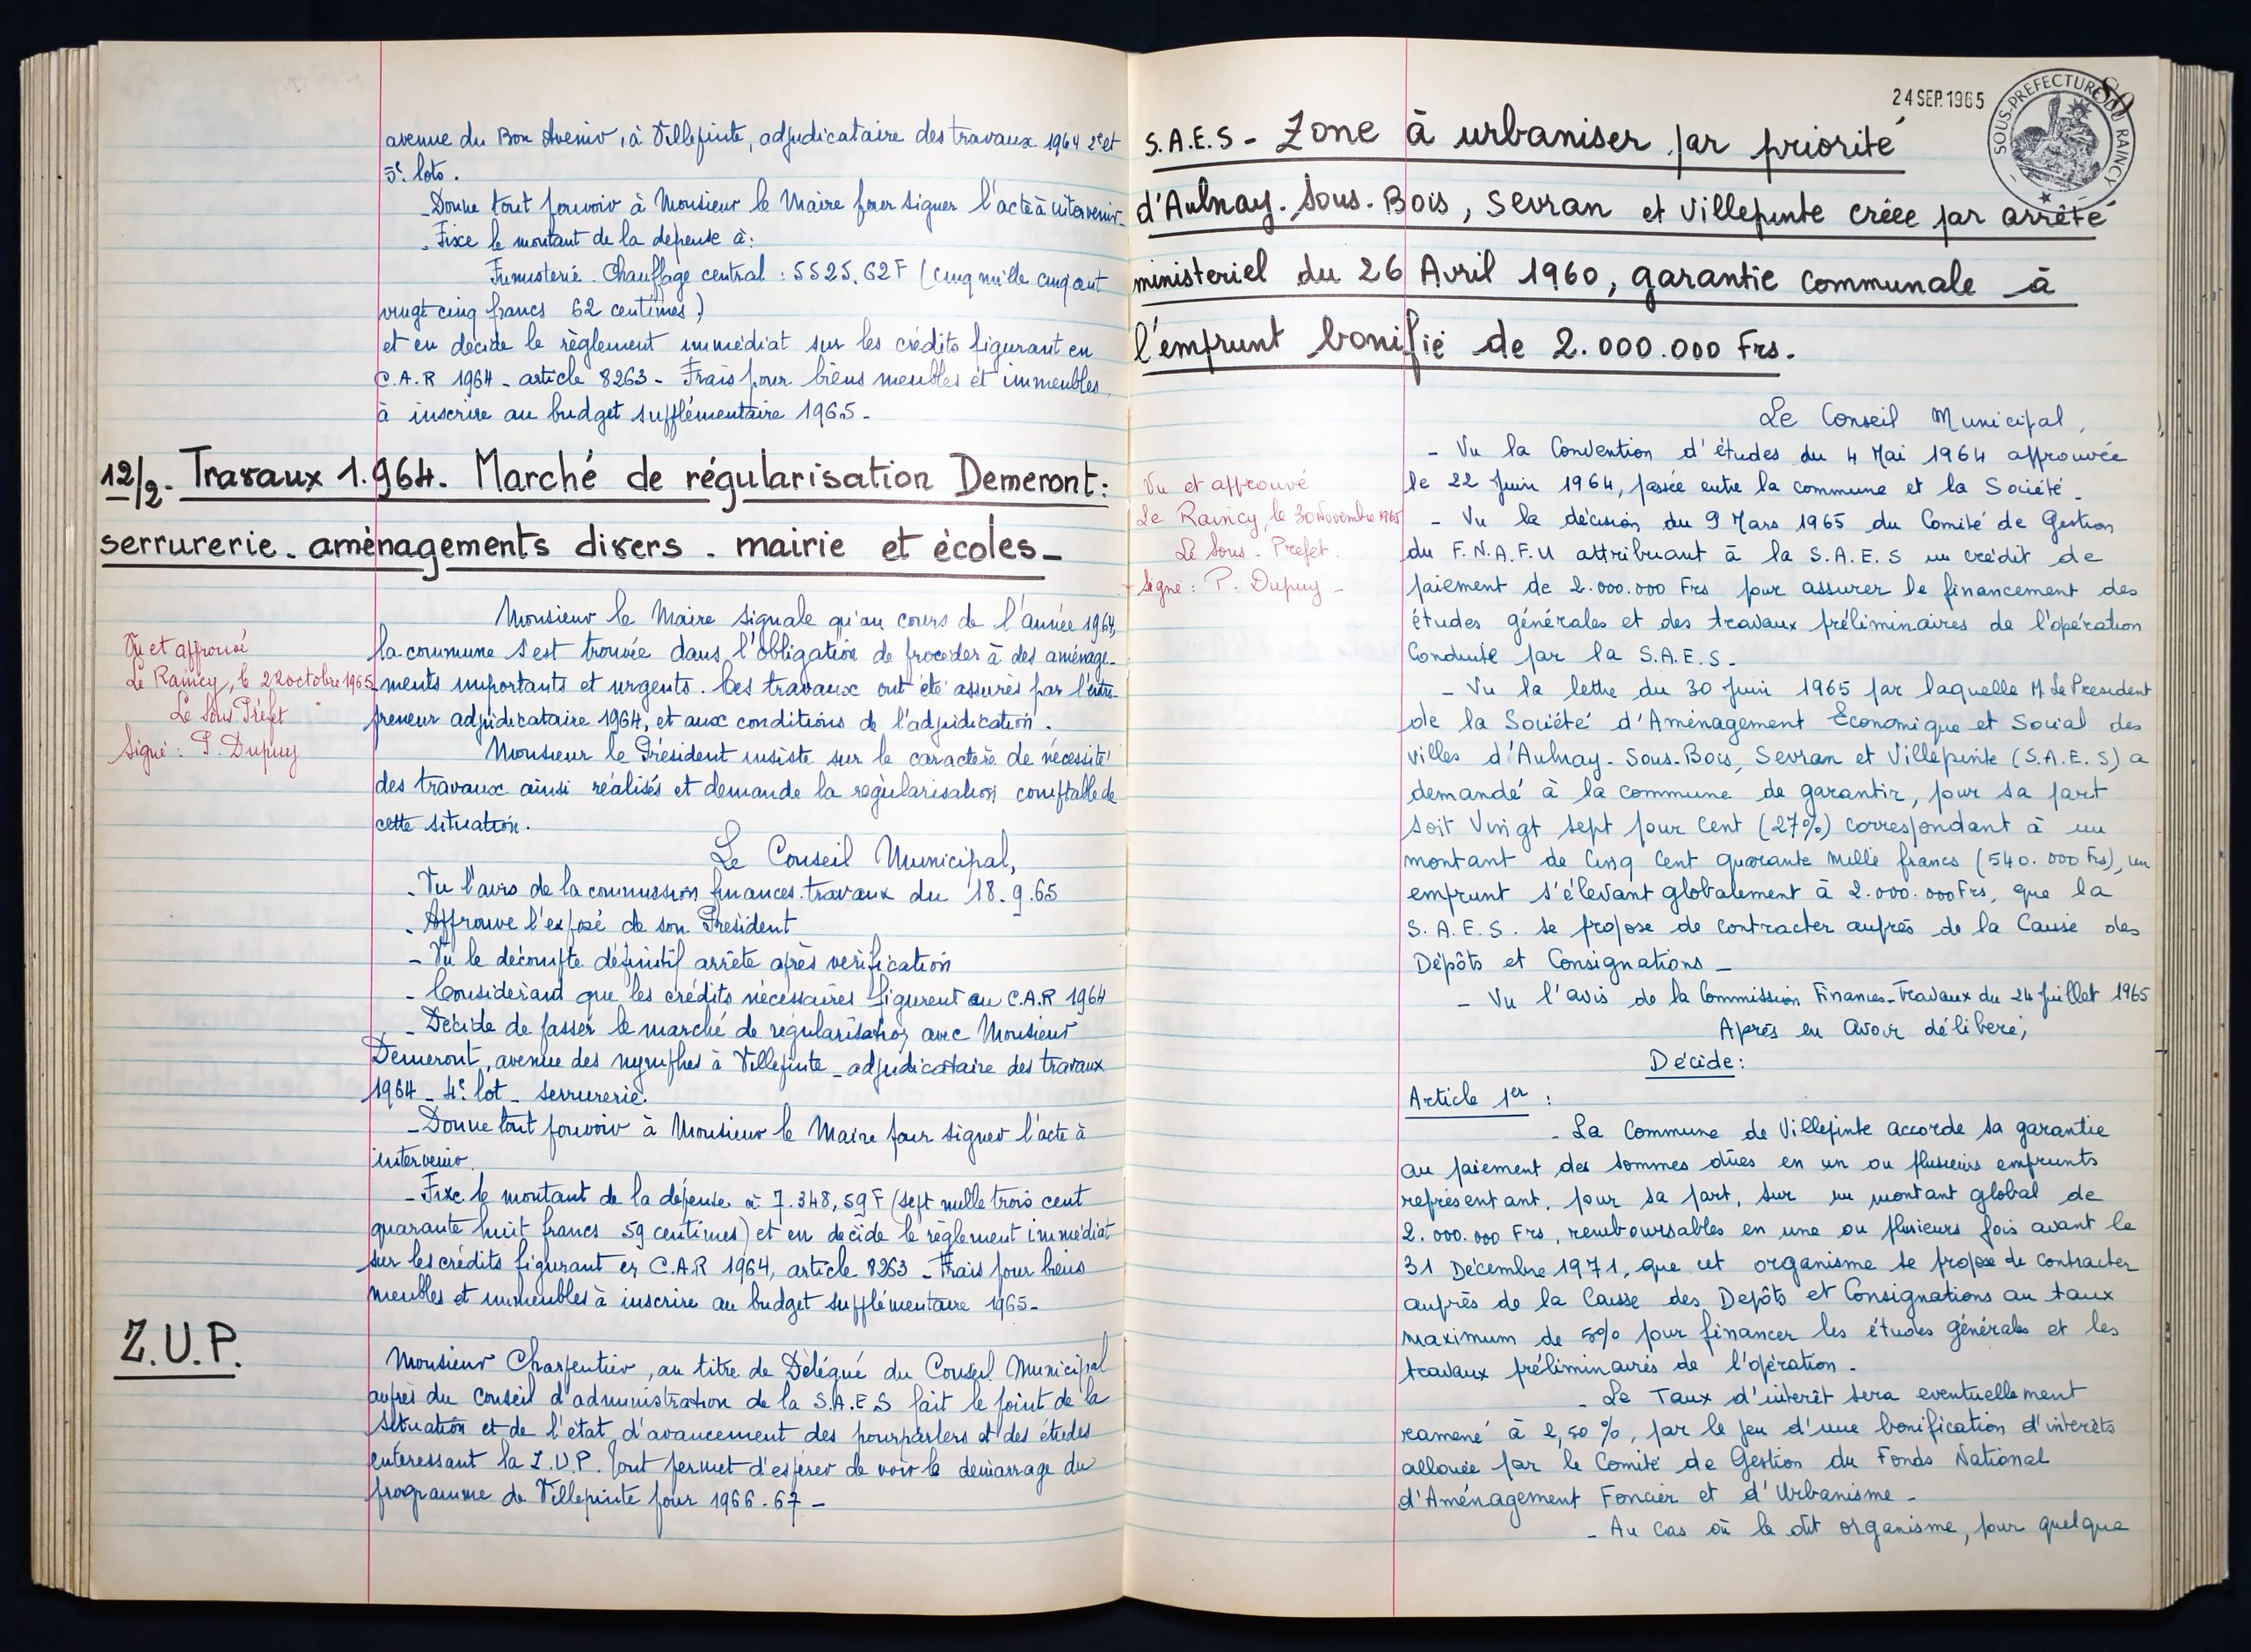 avenue du Bon Avenir, à Villepinte, adjudicataire des travaux 1964 2e et
5e lots.
- Donne tout pouvoir à Monsieur le Maire pour signer l'acte à intervenir -
- Fixe le montant de la dépense à :
Fumisterie - Chauffage central : 5525,62 F (cinq mille cinq cent
vingt cinq francs 62 centimes)
et en décide le règlement immédiat sur les crédits figurant en
C.A.R 1964 - article 8263 - Frais pour biens meubles et immeubles,
à inscrire au budget supplémentaire 1965 -
12/2 - Travaux 1.964. Marché de régularisation Demeront :
serrurerie - aménagements divers - mairie et écoles -
Vu et approuvé
Le Raincy, le 22 octobre 1965
Le Sous Préfet
Signé : P. Dupuy
Monsieur le Maire signale qu'au cours de l'année 1964,
la commune s'est trouvée dans l'obligation de procéder à des aménage-
ments importants et urgents. Ces travaux ont été assurés par l'entre-
preneur adjudicataire 1964, et aux conditions de l'adjudication.
Monsieur le Président insiste sur le caractère de nécessité
des travaux ainsi réalisés et demande la régularisation comptable de
cette situation.
Le Conseil Municipal,
- Vu l'avis de la commission finances-travaux du 18.9.65
- Approuve l'exposé de son Président
- Vu le décompte définitif arrêté après vérification
- Considérant que les crédits nécessaires figurent au C.A.R 1964
- Décide de passer le marché de régularisation avec Monsieur
Demeront, avenue des nymphes à Villepinte - adjudicataire des travaux
1964 - 4e lot - serrurerie.
- Donne tout pouvoir à Monsieur le Maire pour signer l'acte à
intervenir.
- Fixe le montant de la dépense à 7.348,59 F (sept mille trois cent
quarante huit francs 59 centimes) et en décide le règlement immédiat
sur les crédits figurant en C.A.R 1964, article 8263 - Frais pour biens
meubles et immeubles à inscrire au budget supplémentaire 1965 -
Z.U.P.
Monsieur Charpentier, au titre de Délégué du Conseil Municipal
auprès du Conseil d'administration de la S.A.E.S fait le point de la
situation et de l'état d'avancement des pourparlers et des études
intéressant la Z.U.P. Tout permet d'espérer de voir le démarrage du
programme de Villepinte pour 1966-67 -
24 SEP. 1965
80
SOUS-PREFECTURE DU RAINCY
S.A.E.S - Zone à urbaniser par priorité
d'Aulnay-Sous-Bois, Sevran et Villepinte créée par arrêté
ministeriel du 26 Avril 1960, garantie communale à
l'emprunt bonifié de 2.000.000 Frs.
Vu et approuvé
Le Raincy, le 30 Novembre 1965
Le Sous-Préfet.
Signé : P. Dupuy -
Le Conseil Municipal,
- Vu la Convention d'études du 4 Mai 1964 approuvée
le 22 Juin 1964, passée entre la commune et la Société.
- Vu la décision du 9 Mars 1965 du Comité de Gestion
du F.N.A.F.U attribuant à la S.A.E.S un crédit de
paiement de 2.000.000 Frs pour assurer le financement des
études générales et des travaux préliminaires de l'opération
Conduite par la S.A.E.S -
- Vu la lettre du 30 Juin 1965 par laquelle M. Le President
de la Société d'Aménagement Economique et Social des
villes d'Aulnay-Sous-Bois, Sevran et Villepinte (S.A.E.S) a
demandé à la commune de garantir, pour sa part
soit Vingt sept pour cent (27%) correspondant à un
montant de Cinq Cent quarante Mille francs (540.000 Frs), un
emprunt s'élevant globalement à 2.000.000 Frs, que la
S.A.E.S. se propose de contracter auprès de la Caisse des
Dépôts et Consignations -
- Vu l'avis de la Commission Finances-Travaux du 24 Juillet 1965
Après en avoir délibéré,
Décide :
Article 1er :
- La Commune de Villepinte accorde sa garantie
au paiement des sommes dûes en un ou plusieurs emprunts
représentant, pour sa part, sur un montant global de
2.000.000 Frs, remboursables en une ou plusieurs fois avant le
31 Décembre 1971, que cet organisme se propose de contracter
auprès de la Caisse des Depôts et Consignations au taux
maximum de 5% pour financer les études générales et les
travaux préliminaires de l'opération -
- Le Taux d'intérêt sera eventuellement
ramené à 2,50 %, par le jeu d'une bonification d'intérêts
allouée par le Comité de Gestion du Fonds National
d'Aménagement Foncier et d'Urbanisme -
- Au cas où le dit organisme, pour quelque